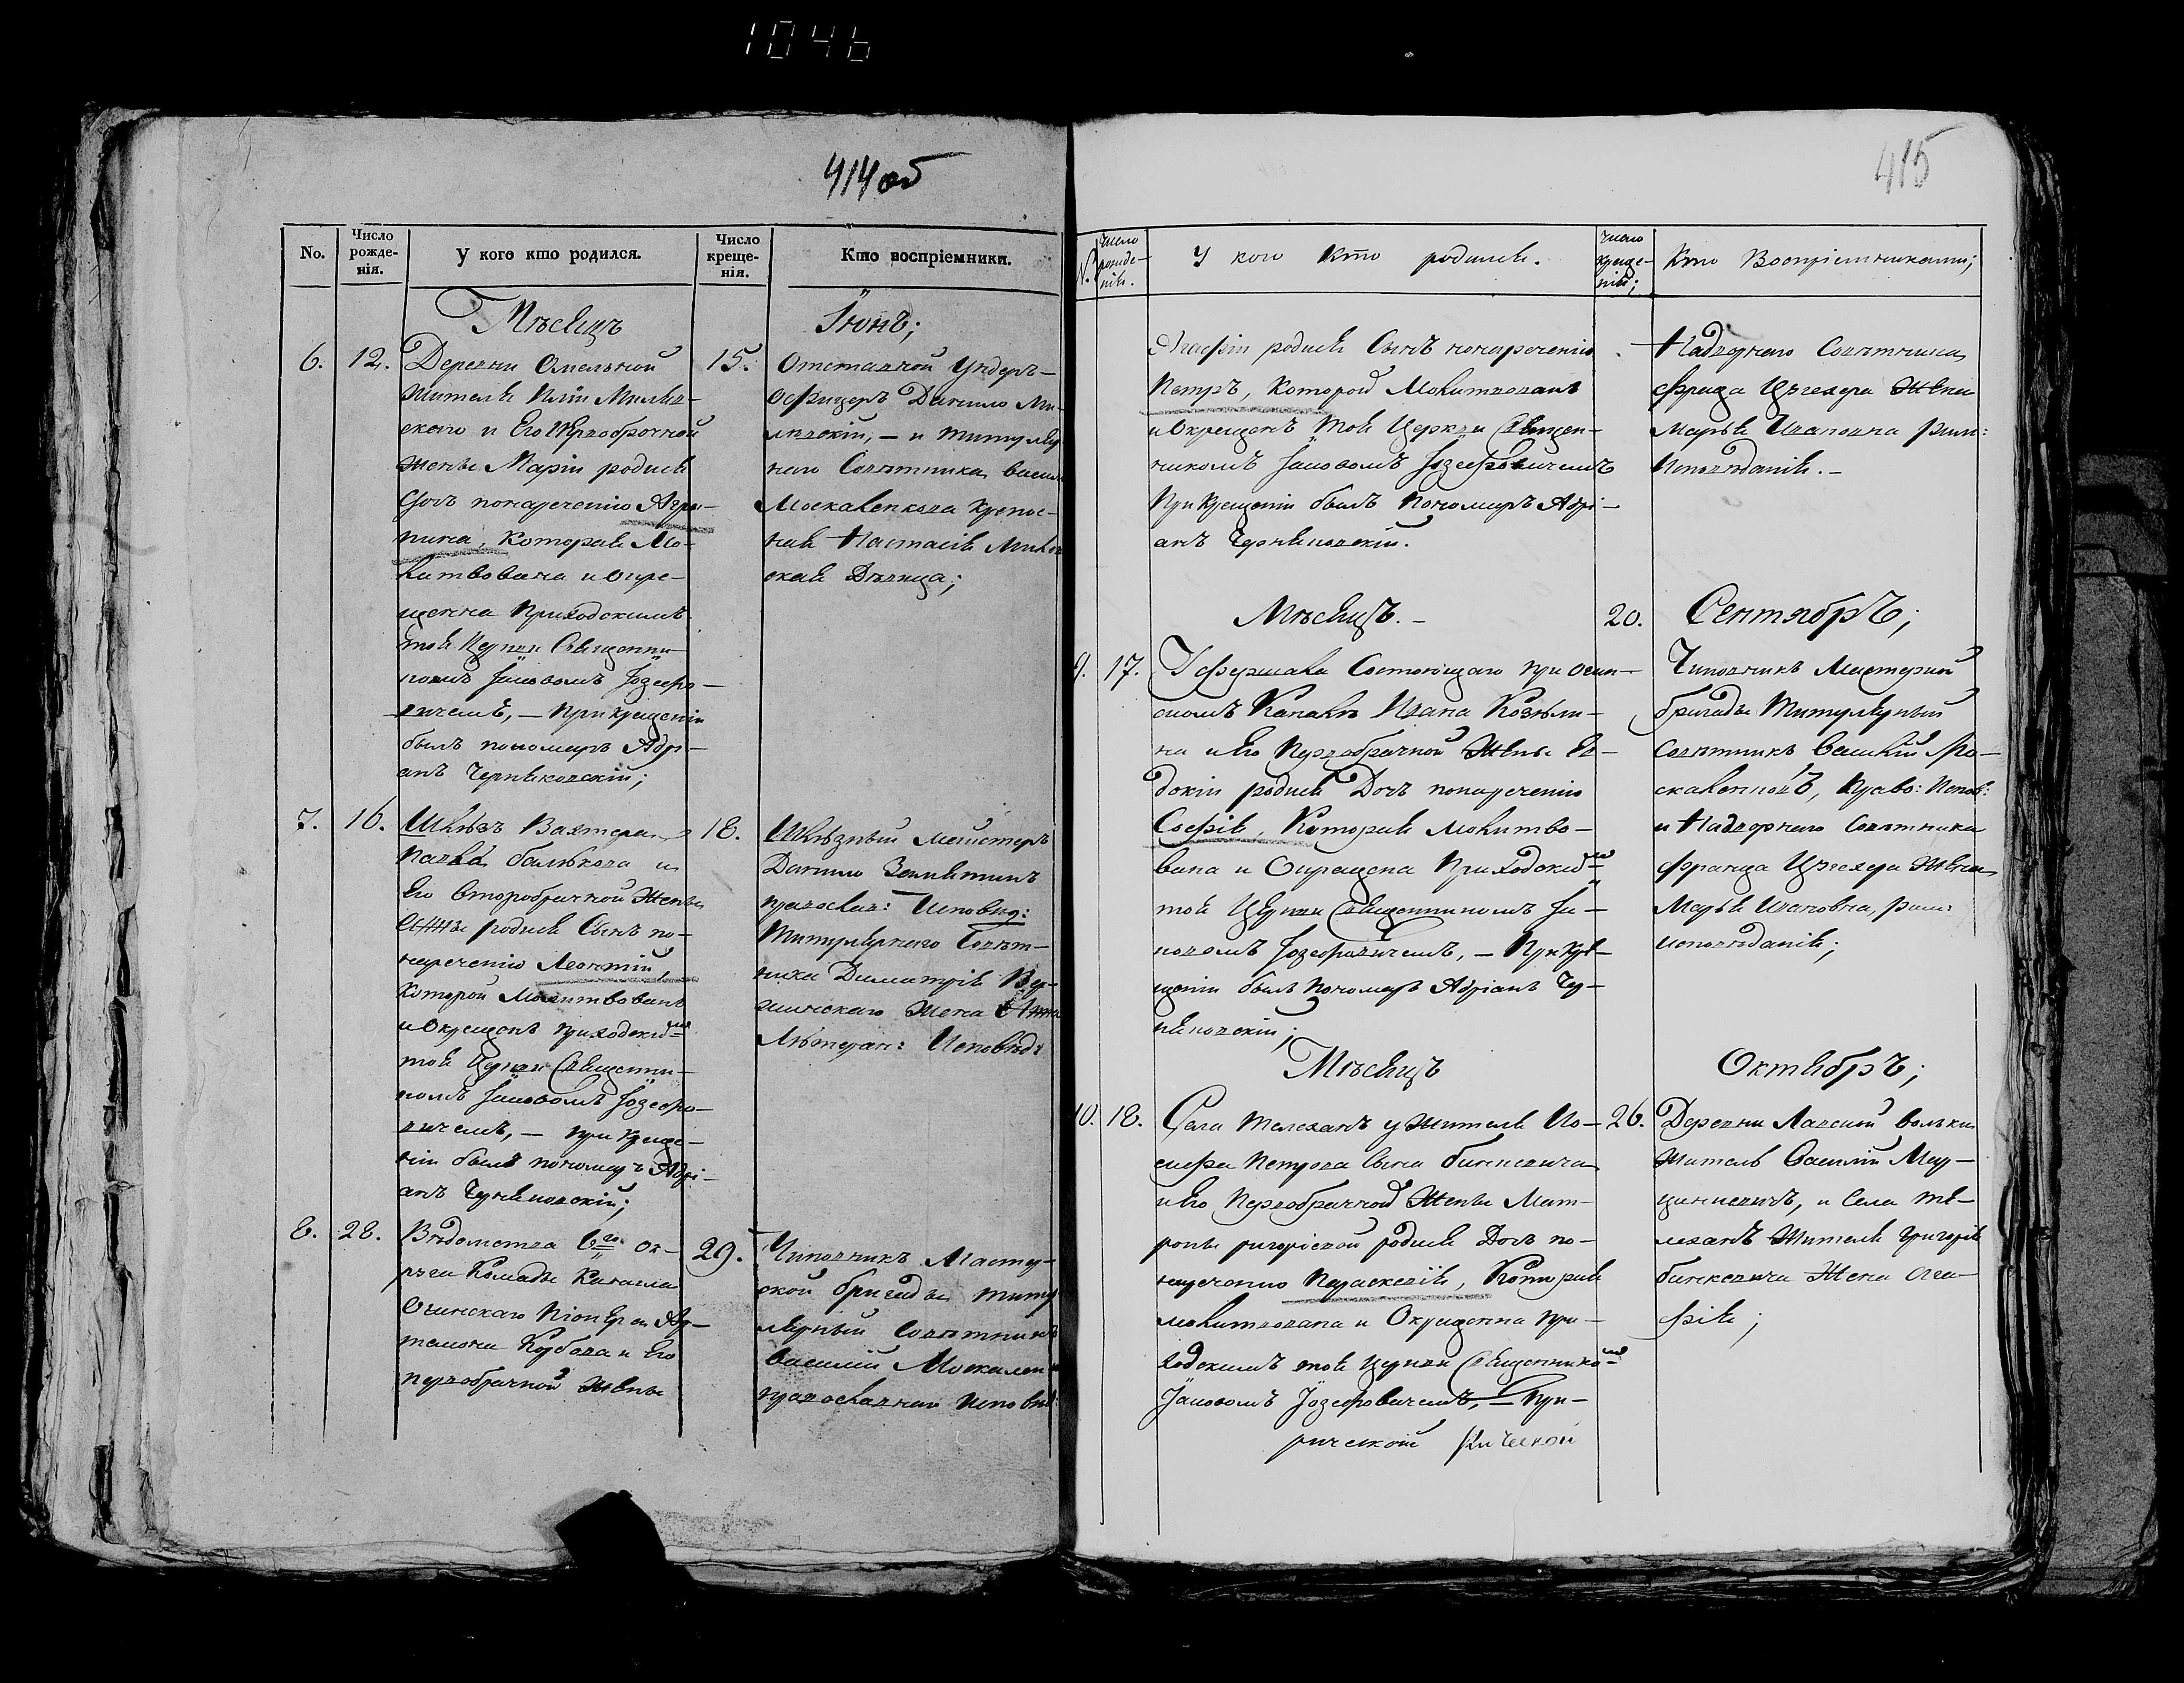 1046
414 об
No.
Число рожде-нія.
У кого кто родился.
Число креще-нія.
Кто воспріемники.
Мѣсяцъ
Іюнь;
6.
12.
Деревни Омельной
жителя Иліи Миляв-
скаго и Его Первобрачной
жены Маріи родися
Дочь понареченію Агри-
пина, Которая Мо-
литвована и Окре-
щенна Приходскимъ
той Церкви Священни-
комъ Іаковомъ Іозефо-
вичемъ, — При крещеніи
былъ пономарь Адрі-
анъ Черняковскій;
15.
Отставной Ундеръ-
Офицеръ Данило Ми-
лявскій, — и титуляр
наго Совѣтника Васил
Москаленкова крѣпос-
ная Настасія
ская Дѣвица;
7.
16.
Шлюзъ Вахтера
Павла Балыкова и
Его Второбрачной Жены
Анны родися Сынъ по-
нареченію Леонтій,
Которой Молитвованъ
и Окрещенъ приходскимъ
той Церкви Священни-
комъ Іаковомъ Іозефо-
вичемъ, — при Креще-
ніи былъ пономарь Адрі-
анъ Черняковскій;
18.
Шлюзный Мейстеръ
Данило
православ: Исповѣд:
Титулярнаго Совѣт-
ника Димитрія Вер-
шинскаго Жена Анна
Лютеран: Исповѣд:
8.
28.
Вѣдомства 6го Ок-
руга Команды Канала
Огинскаго Піонера Ар-
тамона Корбова и Его
первобрачной Жены
29.
Чиновникъ Мастер-
ской бригады титу
лярный Совѣтникъ
Василій Москален
православнаго Исповѣд:
415
№
Число рожде-нія.
У кого Кто родился.
Число креще-нія;
Кто Воспріемниками;
Агафіи родися Сынъ понареченію
Петръ, Которой Молитвованъ
и Окрещенъ той Церкви Священ-
никомъ Іаковомъ Іозефовичемъ
При Крещеніи былъ Пономарь Адрі-
анъ Черняковскій.
Надворнаго Совѣтника
Франца Цѣхера Жена
Марья Ивановна Рим:
Исповѣданія. —
Мѣсяцъ. —
Сентябрь;
9.
17.
У фершала Состоящаго при Огин-
скомъ Каналѣ Ивана Козѣли-
на и Его Первобрачной Жены Ев-
докіи родися Дочь понареченію
Софія, Которая Молитво-
вана и Окрещена Приходскимъ
той Церкви Священникомъ Іа-
ковомъ Іозефовичемъ, — При Кре-
щеніи былъ Пономарь Адріанъ Чер-
няковскій;
20.
Чиновникъ Мастерной
бригады Титулярный
Совѣтникъ Василій Мо-
скаленковъ, Право: Испов:
и Надворнаго Совѣтника
Франца Цѣхера Жена
Марья Ивановна, Рим:
исповѣданія;
Мѣсяцъ
Октябрь;
10.
18.
Села Телеханъ у Жителя Іо-
сифа Петрова Сына Бинкевича
и Его Первобрачной Жены Мат-
роны родися Дочь по-
нареченію Параскевія, Которая
молитвована и Окрещенна При-
ходскимъ той Церкви Священникомъ
Іаковомъ Іозефовичемъ, — При-
26.
Деревни Вольки
Житель Василій Мар-
цинкевичъ, и Села Те-
леханъ Жителя Григорія
Бинкевича Жена Ага-
фія;